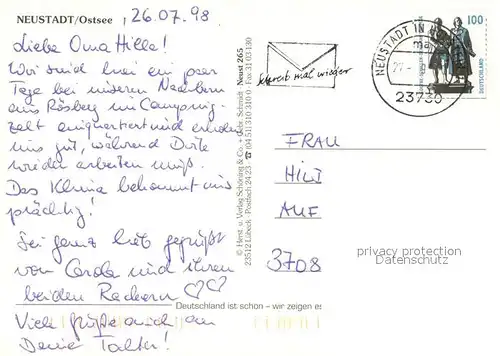 NEUSTADT/Ostsee
, 26.07.98
Liebe Oma Hilla!
Wir sind hier ein paar
Tage bei unseren Nachbarn
aus Rösberg im Camping-
zelt einquartiert und erholen
uns gut, während Dirk
wieder arbeiten muß.
Das Klima bekommt uns
prächtig!
Sei ganz lieb gegrüßt
von Carola und ihren
beiden Rackern
Viele Grüße auch an
Deine Tochter!
© Herst. u. Verlag Schöning & Co. + Gebr. Schmidt Neus 265
23512 Lübeck · Postfach 24 23 ☎ (04 51) 310 310-0 · Fax 31 03 130
Schreib mal wieder
NEUSTADT IN
23730
100
DEUTSCHLAND
FRAU
HILI
AUF
3708
privacy protection
Datenschutz
Deutschland ist schön – wir zeigen es